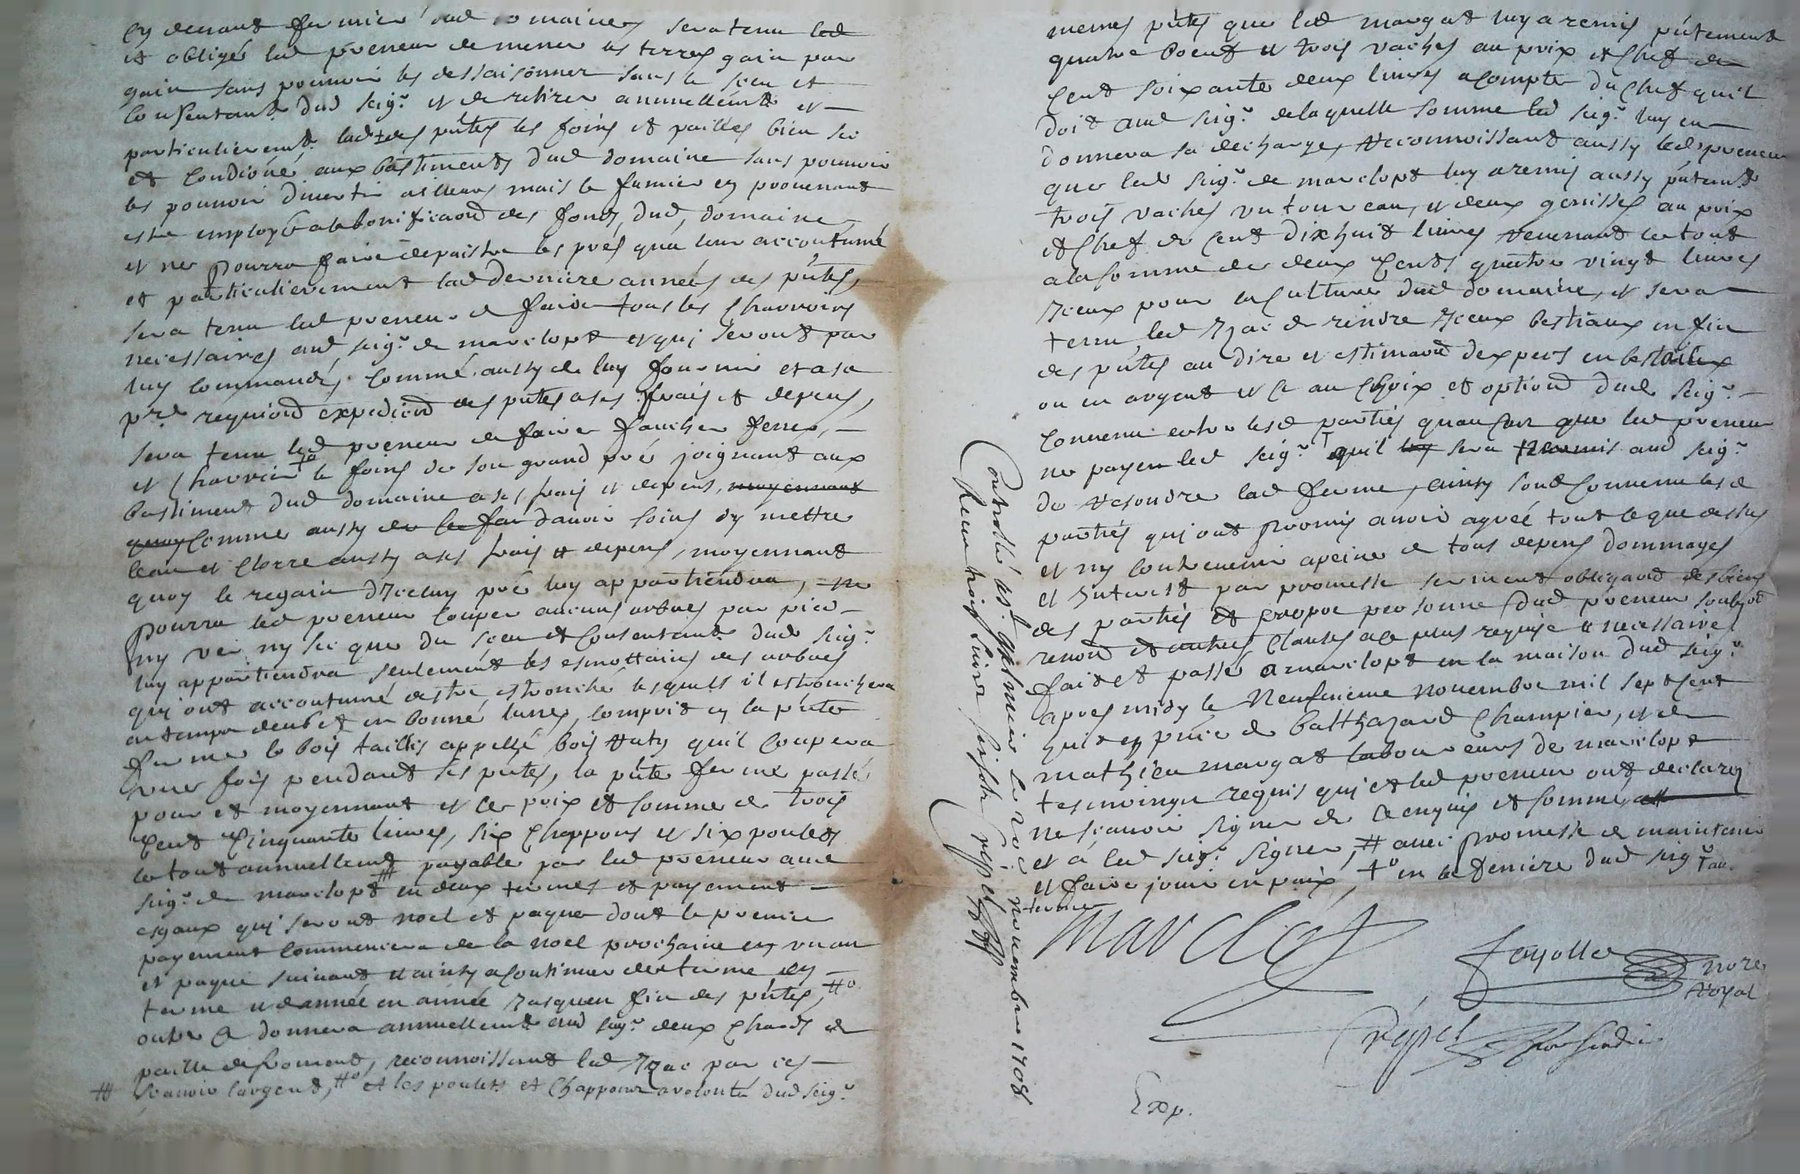 cy devant fermier dud domaine, sera tenu led
et obligé led preneur de mener les terres gain par
gain sans pouvoir les dessaisonner sans le sceu et
consentant dud seigr et de retirer annuellemt et
particulieremt lad pntes les foins et pailles bien sec
et condioné aux bastiments dud domaine sans pouvoir
les pouvoir divertir ailleurs mais le fumier en provenant
estre employé a la bonificaon des fonds dud, domaine
et ne pourra faire depaistre les prés qua leur accoutumé
et particulierement lad derniere année des pntes,
sera tenu led preneur de faire tous les charrois
necessaires aud seigr de marclopt et qui seront par
luy commandés, comme aussy de luy fournir et a sa
pre requiond expediond des pntes a ses frais et depens,
sera tenu led preneur de faire faucher fener,
et charrier le foins de son grand pré joignant aux
bastiment dud domaine a ses frais et depens, moyennant
quoy comme aussy de le fai davoir soins dy mettre
leau et clorre aussy a ses frais et depens, moyennant
quoy le regain diceluy pré luy appartiendra, ne
pourra led preneur couper aucuns arbres par pied
ny ver ny sec que du sceu et consentant dud seigr
luy appartiendra seulement les esmottains des arbres
qui ont accoutumé destre estronché lesquels il estronchera
en temps deub et en bonne lune, compris en la pnte
ferme le bois taillis appellé bois quil coupera
une fois pendant les pntes, la pnte ferme passé
pour et moyennant et le prix et somme de trois
cent cinquante livres, six chappons et six poulets
le tout annuellemt payable par led preneur aud
seigr de marclopt # en deux termes et payement
esgaux qui seront noel et paques dont le premier
payement commencera de la noel prochaine en un an
et paque suivant et ainsy a continuer de terme en
terme et dannée en année jusquen fin des pntes, #o
outre ce donnera annuellemt aud seigr deux chards de
paille de froment, reconnoissant led Izac par ces
# scavoir largent, #o et les poulets et chappons a volonté dud seigr
memes pntes que led margat luy a remis pntement
quatre boeufs et trois vaches au prix et chef de
cent soixante deux livres a compte du chef quil
doit aud seigr de laquelle somme led seigr luy en
donnera sa decharge, reconnoissant aussy led preneur
que led seigr de marclopt luy a remis aussy pntemt
trois vaches un toureau, et deux genisses au prix
et chef de cent dixhuit livres revenant le tout
a la somme de deux cents quatre vingt livres
iceux pour la culture dud domaine, et sera
tenu led Izac de rendre iceux bestiaux en fin
des pntes au dire et estimaon dexpers en bestiaux
ou en argent et ce au choix et option dud seigr
convenu entre lesd parties quau cas que led preneur
ne paye led seigr † quil luy sera permis aud seigr
de resoudre lad ferme, ainsy sont convenu lesd
parties qui ont promis avoir agréé tout le que dessus
et ny contrevenir a peine de tous depens dommages
et interest par promesse serment obligaond des biens
des parties et propre personne dud preneur soubzon
renond et autres clauses a le plus requise et necessaire
fait et passé a marclopt en la maison dud seigr
apres midy le neufvieme novembre mil sept cent
huit en pnce de balthazard champier, et de
mathieu margat laboureurs de marclopt
tesmoingn requis qui et led preneur ont declarez
ne scavoir signer de ce enquis et sommé
et a led seigr signer, # avec promesse de maintenir
et faire jouir en paix, † en la derniere dud seigr
terme
Controllé a st galmier le xve novembre 1708
Receu trois livres six s
Marclopt
fayolle
nore
Royal
Exp.